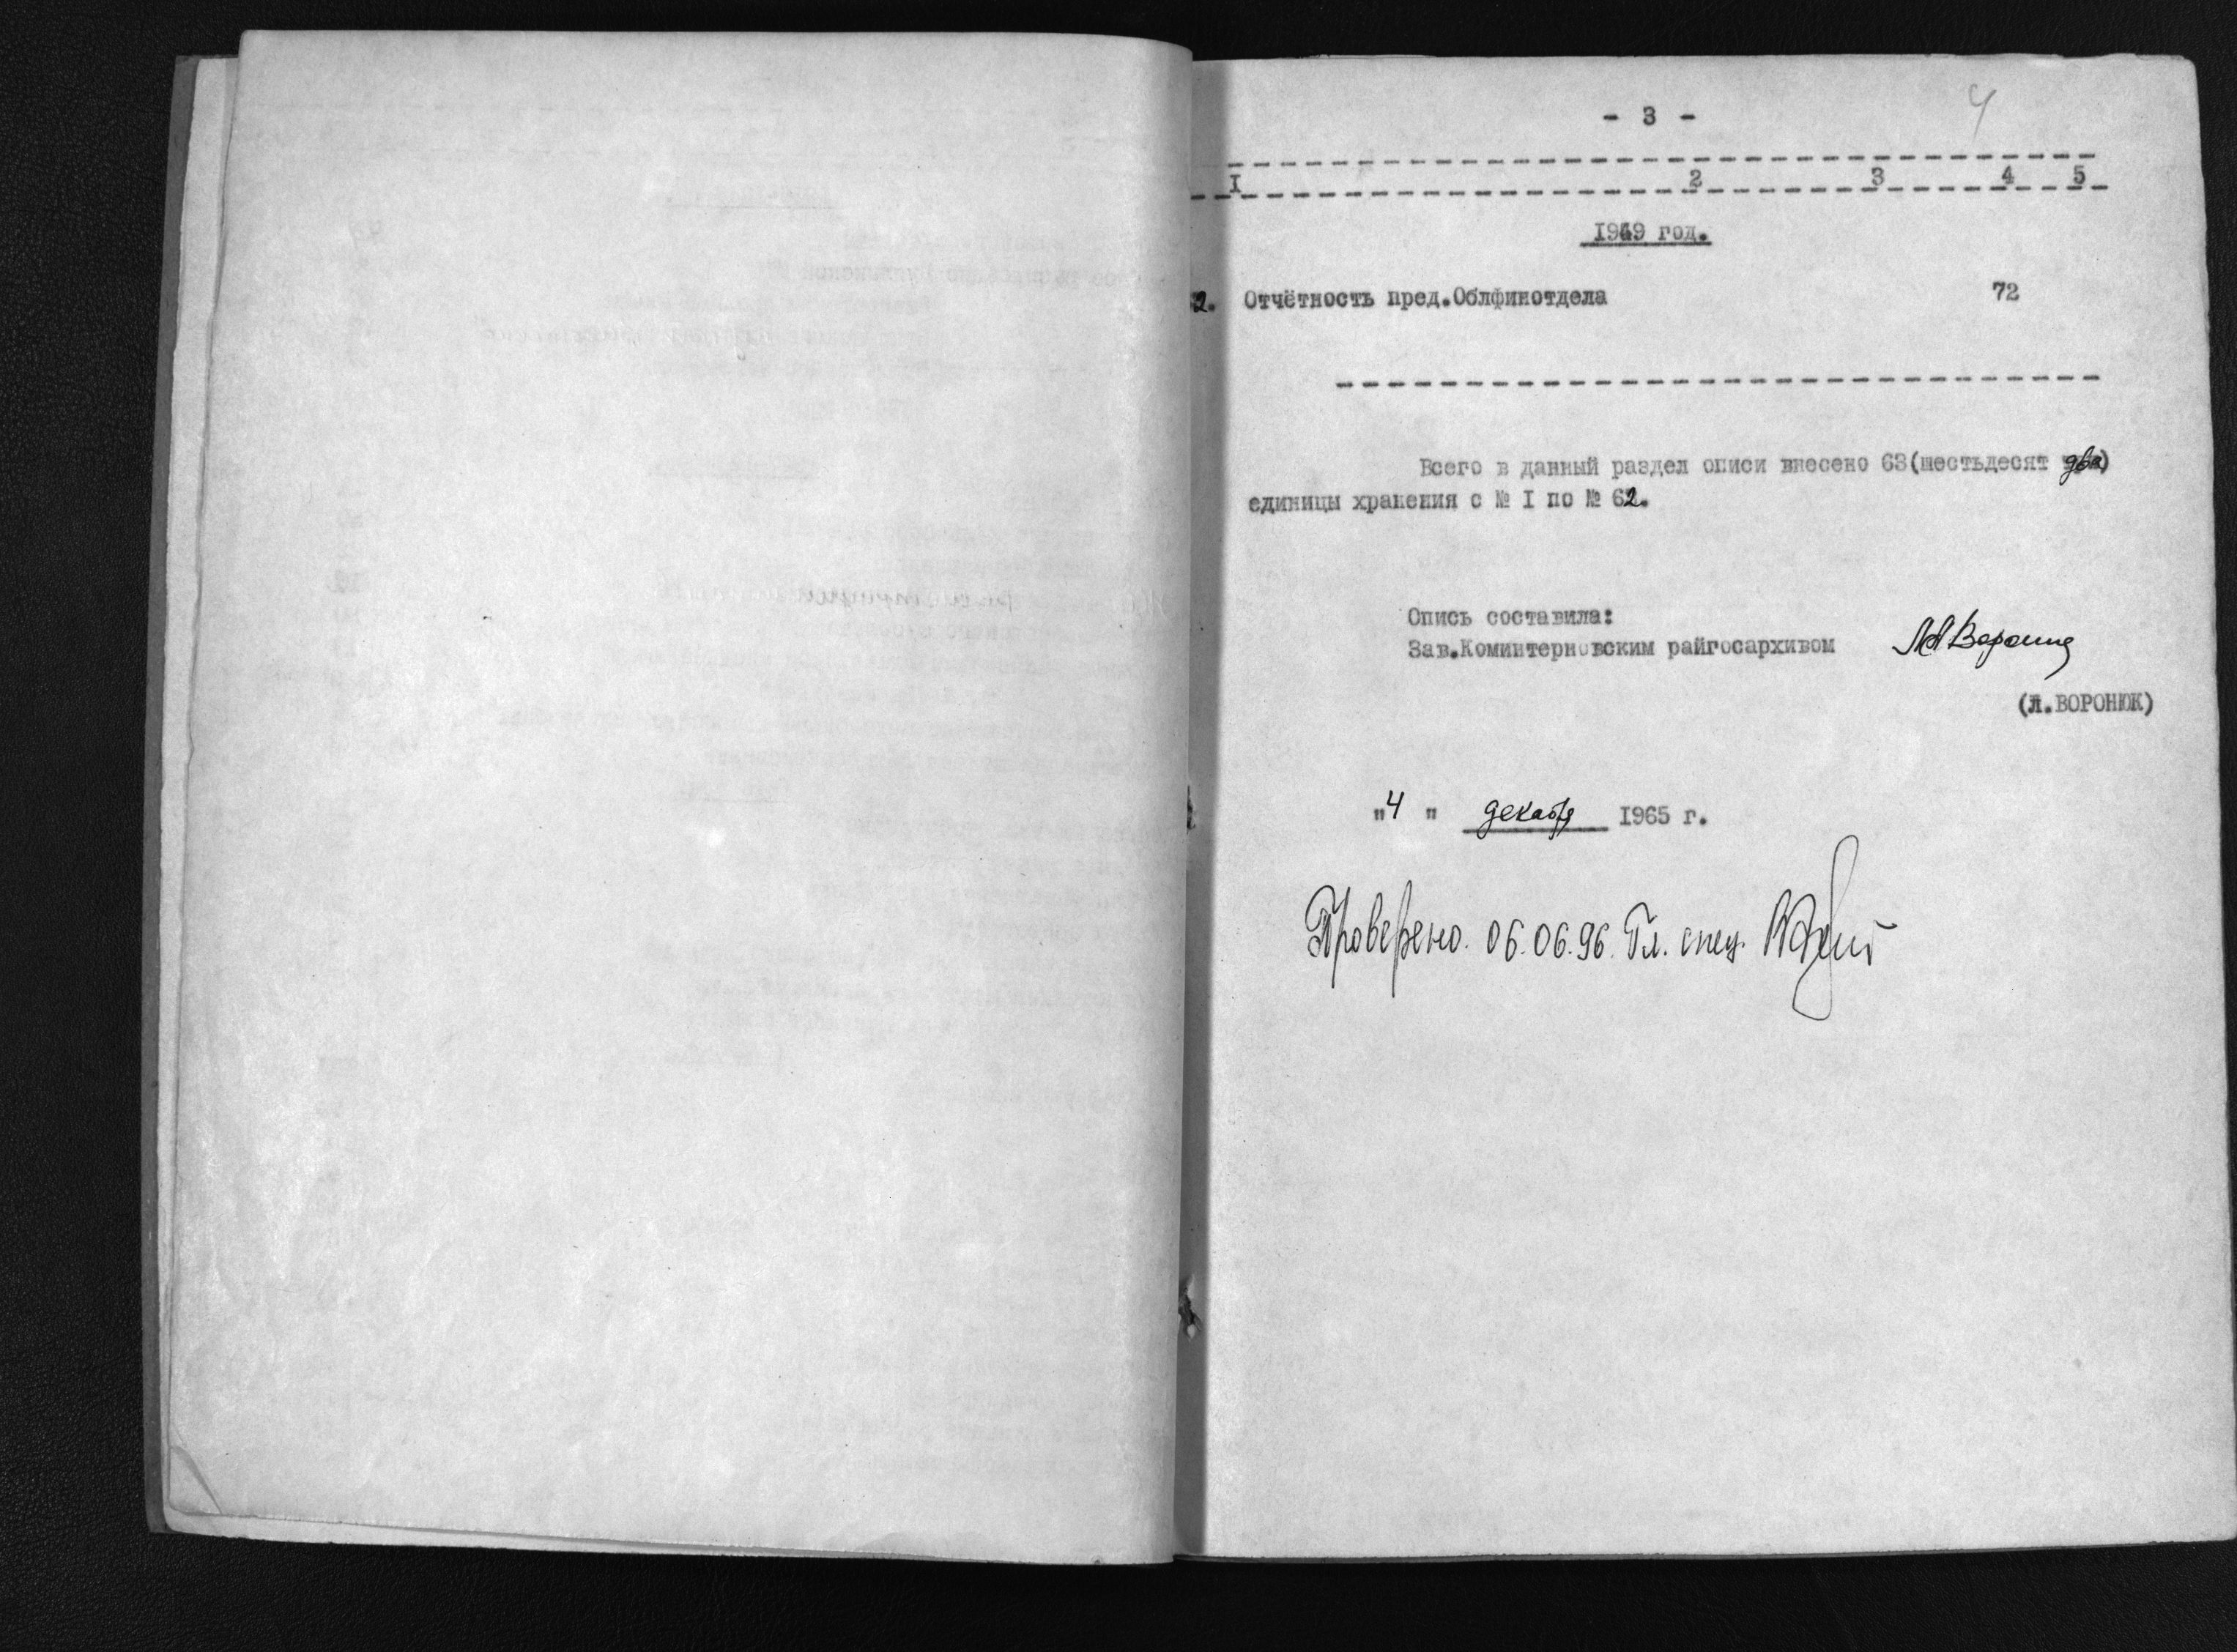 - 3 -
4
I 2 3 4 5
1949 год.
2. Отчётность пред.Облфинотдела 72
Всего в данный раздел описи внесено 63(шестьдесят два)
единицы хранения с № I по № 62.
Опись составила:
Зав.Коминтерновским райгосархивом
(Л.ВОРОНЮК)
"4" декабря 1965 г.
Проверено. 06.06.96. Гл. спец.